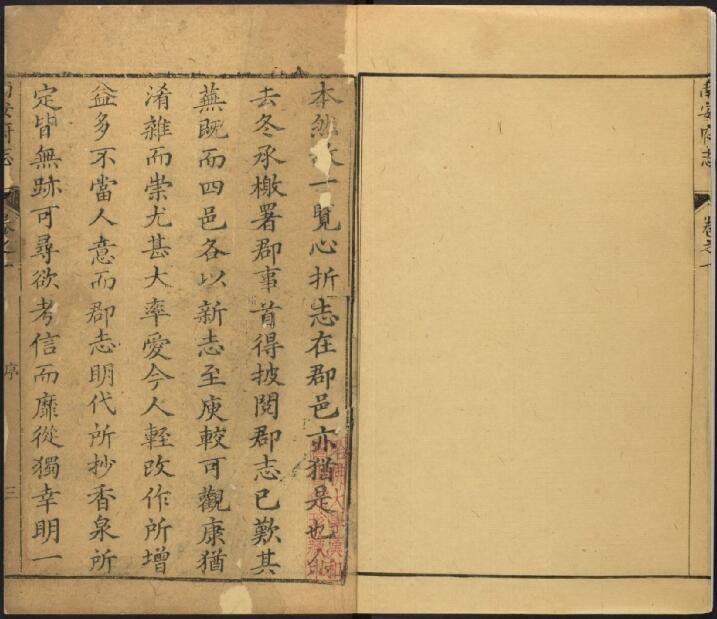 南安府志
卷之一
本然一覽心折志在郡邑亦猶是也
去冬承檄署郡事首得披閱郡志已歎其
蕪既而四邑各以新志至庾較可觀康猶
淆雜而崇尤甚大率愛今人輕改作所增
益多不當人意而郡志明代所抄香泉所
定皆無跡可尋欲考信而靡從獨幸明一
南安府志
卷之一
序
三
哈佛大學漢和
珍藏印